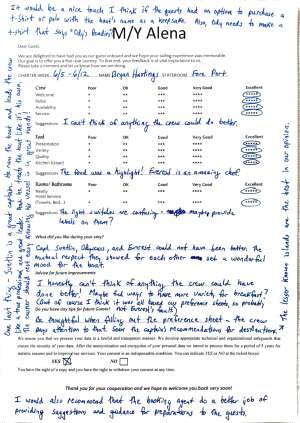 It would be a nice touch I think if the guests had an option to purchase a
t-shirt or polo with the boat's name as a keepsake. Also, Ody needs to make a
t-shirt that says "Ody's
M/Y Alena
Dear Guests,
We are delighted to have had you as our guest onboard and we hope your sailing experience was memorable.
Our goal is to offer you a first-rate journey. To that end, your feedback is of vital importance to us.
Please take a moment and let us know how we are doing.
CHARTER WEEK 6/5 - 6/12 NAME Bryan Hastings STATEROOM Fore Port
Crew Poor OK Good Very Good Excellent
Welcome
Value
Availability
Service
Suggestions I can't think of anything the crew could do better.
Food Poor OK Good Very Good Excellent
Presentation
Variety
Quality
Kitchen (closet)
Suggestions The food was a highlight! Everest is an amazing chef.
Rooms/Bathrooms Poor OK Good Very Good Excellent
Ready
Hotel Service
(Towels, Bed...)
Suggestions The light switches are confusing - maybe provide
labels on them?
What did you like during your stay?
Capt Svetlin, Odysseas, and Everest could not have been better. The
mutual respect they showed for each other set a wonderful
mood for the boat.
Advise for future improvements:
I honestly can't think of anything the crew could have
done better. Maybe find ways to have more variety for breakfast?
(But of course I think it was all based on preference sheets, so probably
not Everest's fault)
Do you have any tips for future Guests?
Be thoughtful when filling out the preference sheet - the crew
pays attention to that. Soak the captain's recommendations for destinations.
We assure you that we process your data in a lawful and transparent manner. We develop appropriate technical and organizational safeguards that
ensure the security of your data. After the interpretation and evaluation of your personal data we intend to preserve them for a period of 5 years for
statistic reasons and to improve our services. Your consent is an indispensable condition. You can indicate YES or NO at the ticked boxes:
YES NO
You have the right of a copy, and you have the right to withdraw your consent at any time.
Thank you for your cooperation and we hope to welcome you back very soon!
I would also recommend that the booking agent do a better job of
providing suggestions and guidance for preparations to the guests.
One last thing - Svetlin is a great captain. He runs the boat and leads the crew
like a true professional and great leader. And he treats the boat like it's his own.
* The lesser known islands are the best in our opinion.